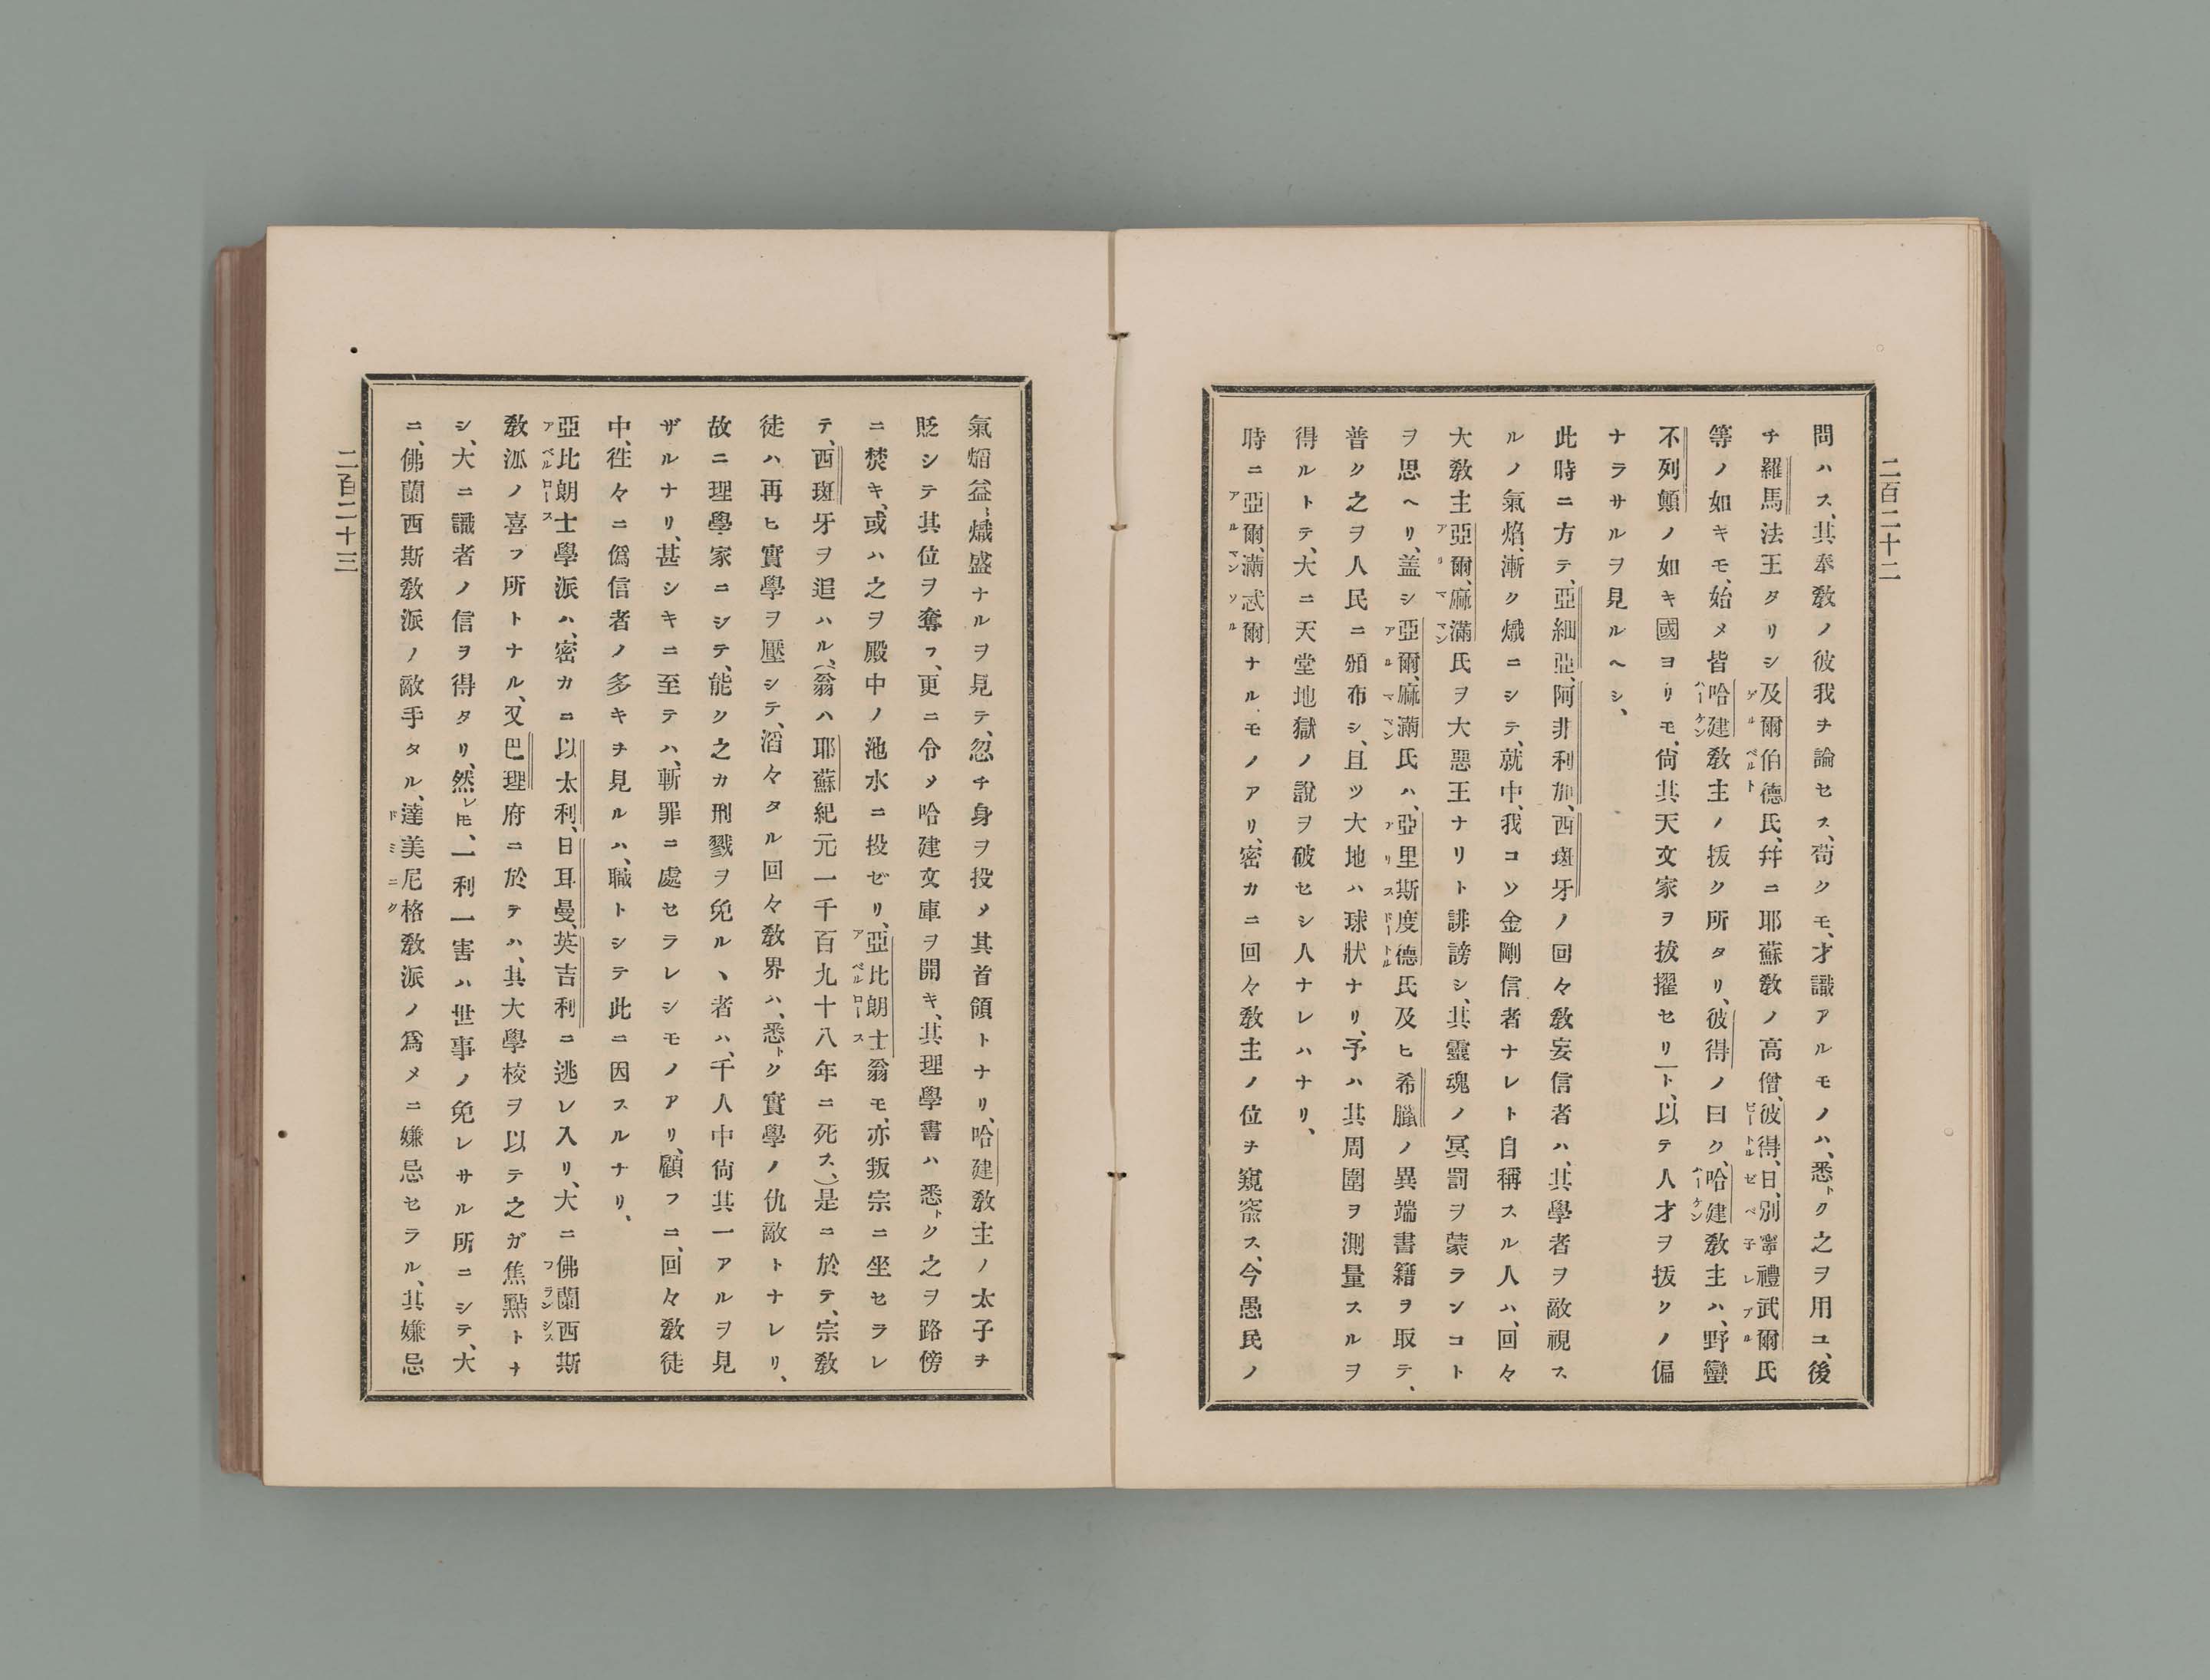 二百二十二
問ハス、其奉敎ノ彼我ヲ論セス、苟クモ、才識アルモノハ、悉トク之ヲ用ユ、後
チ羅馬法王タリシ及爾伯德氏、幷ニ耶蘇敎ノ高僧、彼得、日、別寧禮武爾氏
等ノ如キモ、始メ皆哈建敎主ノ拔ク所タリ、彼得ノ曰ク、哈建敎主ハ、野蠻
不列顛ノ如キ國ヨリモ、尙其天文家ヲ拔擢セリート、以テ人才ヲ拔クノ偏
ナラサルヲ見ルヘシ、
此時ニ方テ、亞細亞、阿非利加、西斑牙ノ回々敎妄信者ハ、其學者ヲ敵視ス
ルノ氣焰、漸ク熾ニシテ、就中、我コソ金剛信者ナレト自稱スル人ハ、回々
大敎主亞爾、麻滿氏ヲ大惡王ナリト誹謗シ、其靈魂ノ冥罰ヲ蒙ランコト
ヲ思ヘリ、盖シ亞爾、麻滿氏ハ、亞里斯度德氏及ヒ希臘ノ異端書籍ヲ取テ、
普ク之ヲ人民ニ頒布シ、且ツ大地ハ球狀ナリ、予ハ其周圍ヲ測量スルヲ
得ルトテ、大ニ天堂地獄ノ說ヲ破セシ人ナレハナリ、
時ニ亞爾、滿忒爾ナルモノアリ、密カニ回々敎主ノ位ヲ窺竊ス、今愚民ノ
氣焰益、熾盛ナルヲ見テ、忽チ身ヲ投メ其首領トナリ、哈建敎主ノ太子ヲ
貶シテ其位ヲ奪フ、更ニ令メ哈建文庫ヲ開キ、其理學書ハ悉トク之ヲ路傍
ニ焚キ、或ハ之ヲ殿中ノ池水ニ投ゼリ、亞比朗士翁モ、亦叛宗ニ坐セラレ
テ、西斑牙ヲ追ハル、（翁ハ耶蘇紀元一千百九十八年ニ死ス、）是ニ於テ、宗敎
徒ハ再ヒ實學ヲ壓シテ、滔々タル回々敎界ハ、悉トク實學ノ仇敵トナレリ、
故ニ理學家ニシテ、能ク之カ刑戮ヲ免ルヽ者ハ、千人中尙其一アルヲ見
ザルナリ、甚シキニ至テハ、斬罪ニ處セラレシモノアリ、顧フニ、回々敎徒
中、徃々ニ僞信者ノ多キヲ見ルハ、職トシテ此ニ因スルナリ、
亞比朗士學派ハ、密カニ以太利、日耳曼、英吉利ニ逃レ入リ、大ニ佛蘭西斯
敎派ノ喜フ所トナル、又巴理府ニ於テハ、其大學校ヲ以テ之ガ焦點トナ
シ、大ニ識者ノ信ヲ得タリ、然レトモ、一利一害ハ世事ノ免レサル所ニシテ、大
ニ、佛蘭西斯敎派ノ敵手タル、達美尼格敎派ノ爲メニ嫌忌セラル、其嫌忌
二百二十三